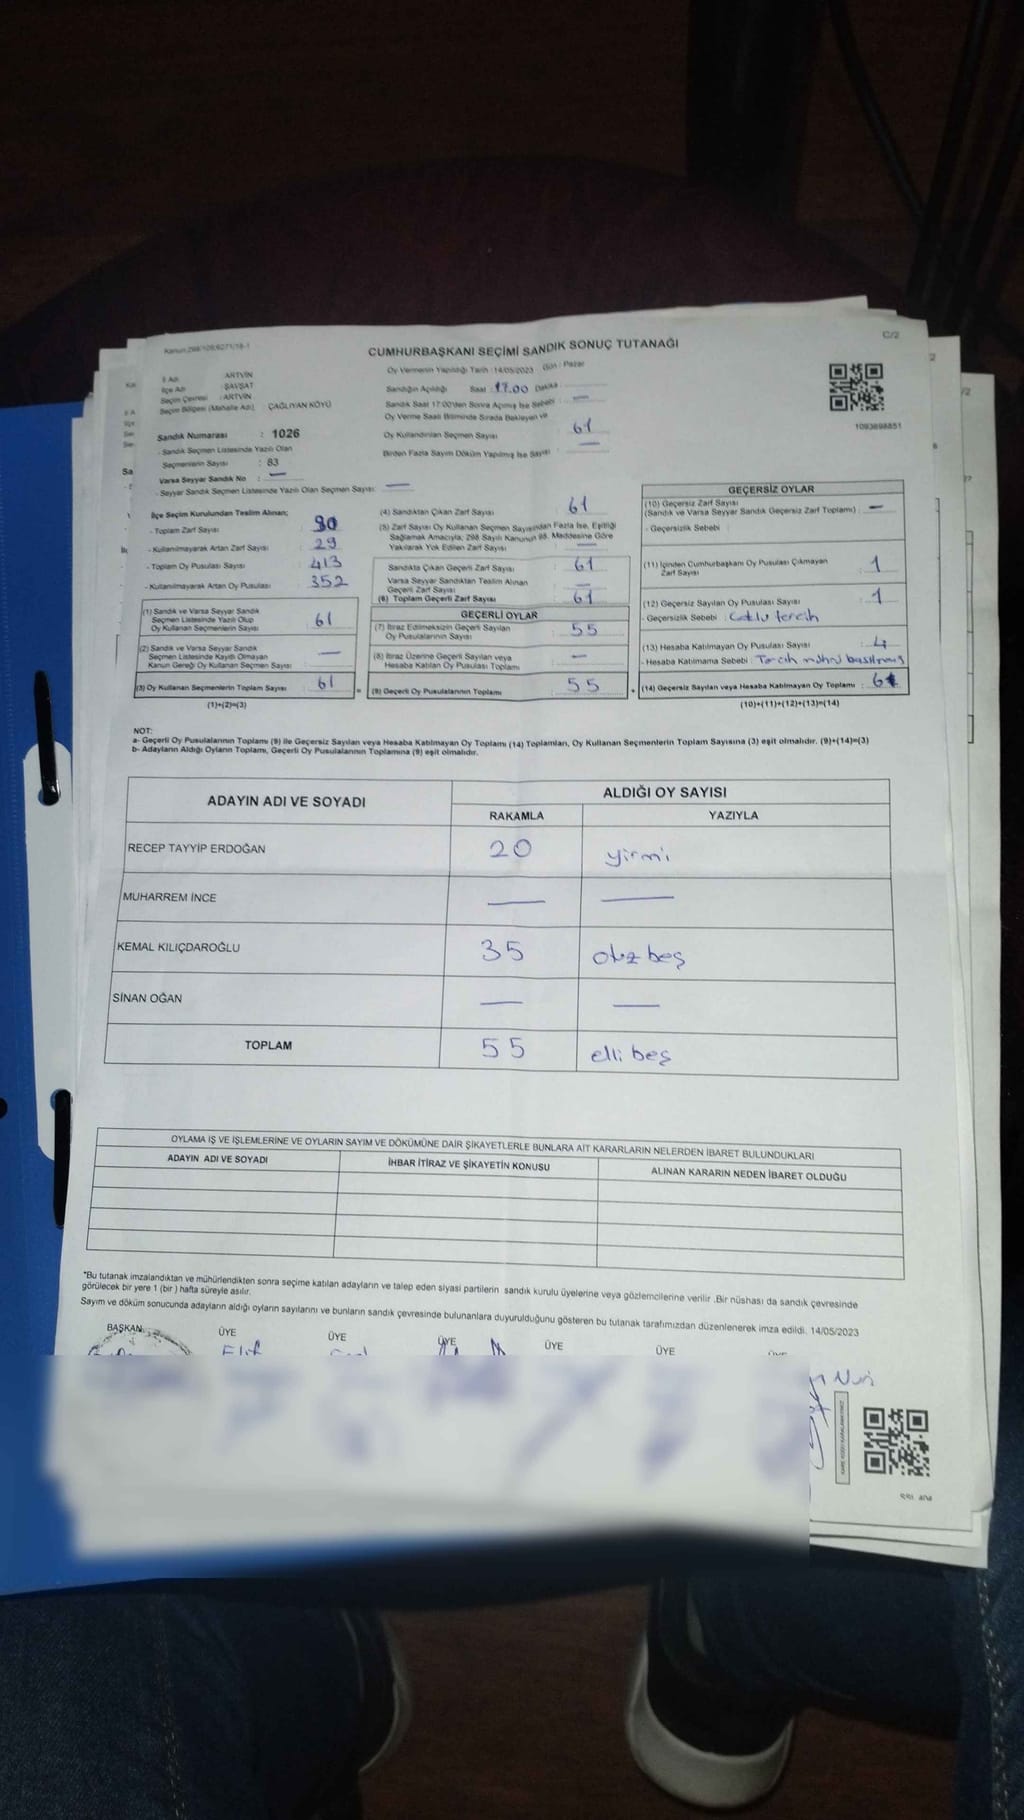 Kanun:298/109;6271/18-1
C/2
CUMHURBAŞKANI SEÇİMİ SANDIK SONUÇ TUTANAĞI
İl Adı : ARTVİN
İlçe Adı : ŞAVŞAT
Seçim Çevresi : ARTVİN
Seçim Bölgesi (Mahalle Adı) ÇAĞLIYAN KÖYÜ
Sandık Numarası : 1026
- Sandık Seçmen Listesinde Yazılı Olan
Seçmenlerin Sayısı : 83
Varsa Seyyar Sandık No : —
- Seyyar Sandık Seçmen Listesinde Yazılı Olan Seçmen Sayısı: —
Oy Vermenin Yapıldığı Tarih :14/05/2023 Gün : Pazar
Sandığın Açıldığı Saat : 17.00 Dakika :
Sandık Saat 17:00'den Sonra Açılmış İse Sebebi : —
Oy Verme Saati Bitiminde Sırada Bekleyen ve
Oy Kullandırılan Seçmen Sayısı 61
Birden Fazla Sayım Döküm Yapılmış İse Sayısı : —
1093898851
İlçe Seçim Kurulundan Teslim Alınan;
- Toplam Zarf Sayısı : 90
- Kullanılmayarak Artan Zarf Sayısı : 29
- Toplam Oy Pusulası Sayısı : 413
- Kullanılmayarak Artan Oy Pusulası : 352
(1) Sandık ve Varsa Seyyar Sandık
Seçmen Listesinde Yazılı Olup
Oy Kullanan Seçmenlerin Sayısı : 61
(2) Sandık ve Varsa Seyyar Sandık
Seçmen Listesinde Kayıtlı Olmayan
Kanun Gereği Oy Kullanan Seçmen Sayısı : —
(3) Oy Kullanan Seçmenlerin Toplam Sayısı : 61
(1)+(2)=(3)
(4) Sandıktan Çıkan Zarf Sayısı : 61
(5) Zarf Sayısı Oy Kullanan Seçmen Sayısından Fazla İse, Eşitliği
Sağlamak Amacıyla; 298 Sayılı Kanunun 98. Maddesine Göre
Yakılarak Yok Edilen Zarf Sayısı : —
Sandıkta Çıkan Geçerli Zarf Sayısı : 61
Varsa Seyyar Sandıktan Teslim Alınan
Geçerli Zarf Sayısı : —
(6) Toplam Geçerli Zarf Sayısı : 61
GEÇERLİ OYLAR
(7) İtiraz Edilmeksizin Geçerli Sayılan
Oy Pusulalarının Sayısı : 55
(8) İtiraz Üzerine Geçerli Sayılan veya
Hesaba Katılan Oy Pusulası Toplamı : —
= (9) Geçerli Oy Pusulalarının Toplamı : 55
GEÇERSİZ OYLAR
(10) Geçersiz Zarf Sayısı
(Sandık ve Varsa Seyyar Sandık Geçersiz Zarf Toplamı) : —
- Geçersizlik Sebebi :
(11) İçinden Cumhurbaşkanı Oy Pusulası Çıkmayan
Zarf Sayısı : 1
(12) Geçersiz Sayılan Oy Pusulası Sayısı : 1
- Geçersizlik Sebebi : Çoklu tercih
(13) Hesaba Katılmayan Oy Pusulası Sayısı : 4
- Hesaba Katılmama Sebebi : Tercih mührü basılmamış
+ (14) Geçersiz Sayılan veya Hesaba Katılmayan Oy Toplamı : 6
(10)+(11)+(12)+(13)=(14)
NOT:
a- Geçerli Oy Pusulalarının Toplamı (9) ile Geçersiz Sayılan veya Hesaba Katılmayan Oy Toplamı (14) Toplamları, Oy Kullanan Seçmenlerin Toplam Sayısına (3) eşit olmalıdır. (9)+(14)=(3)
b- Adayların Aldığı Oyların Toplamı, Geçerli Oy Pusulalarının Toplamına (9) eşit olmalıdır.
ADAYIN ADI VE SOYADI ALDIĞI OY SAYISI
RAKAMLA YAZIYLA
RECEP TAYYİP ERDOĞAN 20 yirmi
MUHARREM İNCE — —
KEMAL KILIÇDAROĞLU 35 otuz beş
SİNAN OĞAN — —
TOPLAM 55 elli beş
OYLAMA İŞ VE İŞLEMLERİNE VE OYLARIN SAYIM VE DÖKÜMÜNE DAİR ŞİKAYETLERLE BUNLARA AİT KARARLARIN NELERDEN İBARET BULUNDUKLARI
ADAYIN ADI VE SOYADI İHBAR İTİRAZ VE ŞİKAYETİN KONUSU ALINAN KARARIN NEDEN İBARET OLDUĞU
*Bu tutanak imzalandıktan ve mühürlendikten sonra seçime katılan adayların ve talep eden siyasi partilerin sandık kurulu üyelerine veya gözlemcilerine verilir .Bir nüshası da sandık çevresinde
görülecek bir yere 1 (bir ) hafta süreyle asılır.
Sayım ve döküm sonucunda adayların aldığı oyların sayılarını ve bunların sandık çevresinde bulunanlara duyurulduğunu gösteren bu tutanak tarafımızdan düzenlenerek imza edildi. 14/05/2023
BAŞKAN ÜYE ÜYE ÜYE ÜYE ÜYE
Elif
Nuri